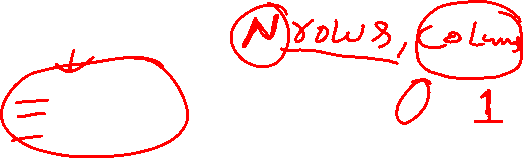 N rows, Column
0 1